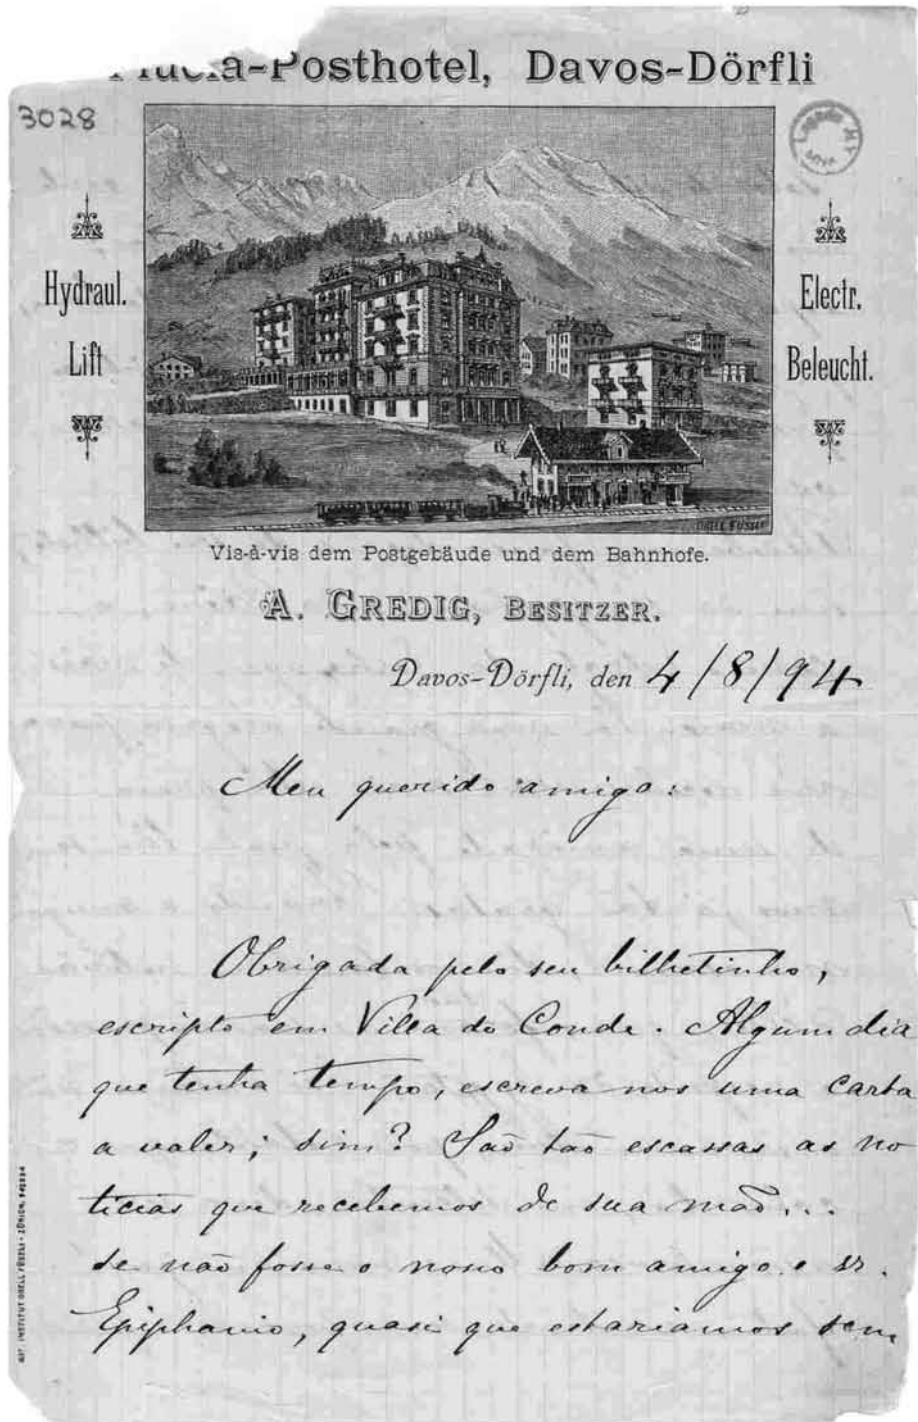 -Posthotel, Davos-Dörfli
3028
Hydraul.
Lift
Electr.
Beleucht.
ORELL FUSSLI
Vis-à-vis dem Postgebäude und dem Bahnhofe.
A. GREDIG, BESITZER.
Davos-Dörfli, den 4/8/94
Meu querido amigo:
Obrigada pelo seu bilhetinho,
escripto em Villa do Conde. Algum dia
que tenha tempo, escreva nos uma carta
a valer; sim? São tão escassas as no
ticias que recebemos de sua mão...
se não fosse o nosso bom amigo o sr.
Epiphanio, quasi que estariamos sem
INSTITUT ORELL FÜSSLI - ZÜRICH.